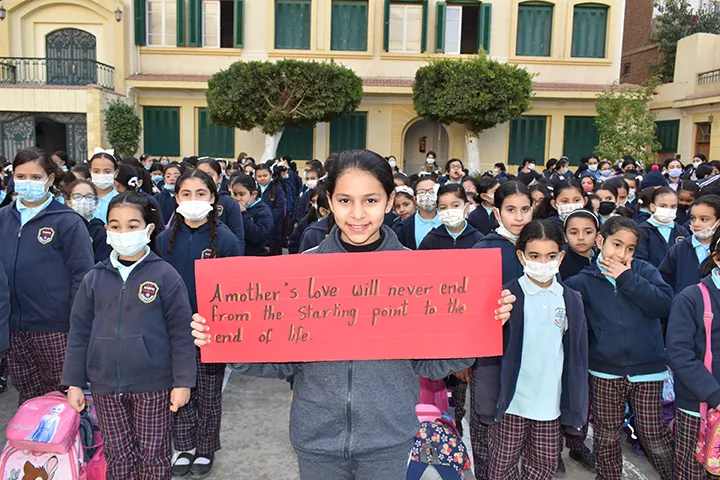 A mother's love will never end
from the starting point to the
end of life.